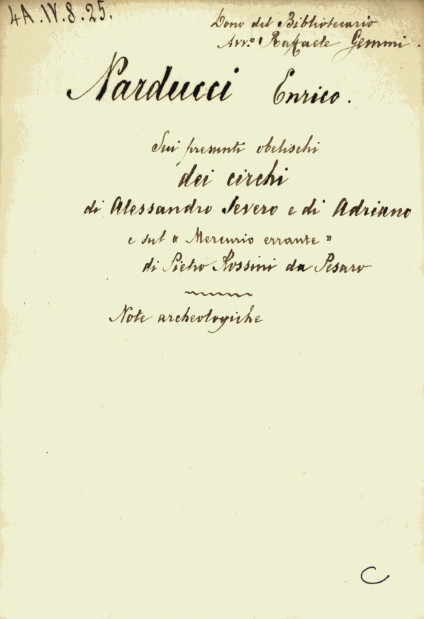 4A.IV.8.25.
Dono del Bibliotecario
Avv.º Raffaele Gemmi.
Narducci Enrico.
Sui presunti obelischi
dei circhi
di Alessandro Severo e di Adriano
e sul « Mercurio errante »
di Pietro Rossini da Pesaro
Note archeologiche
C